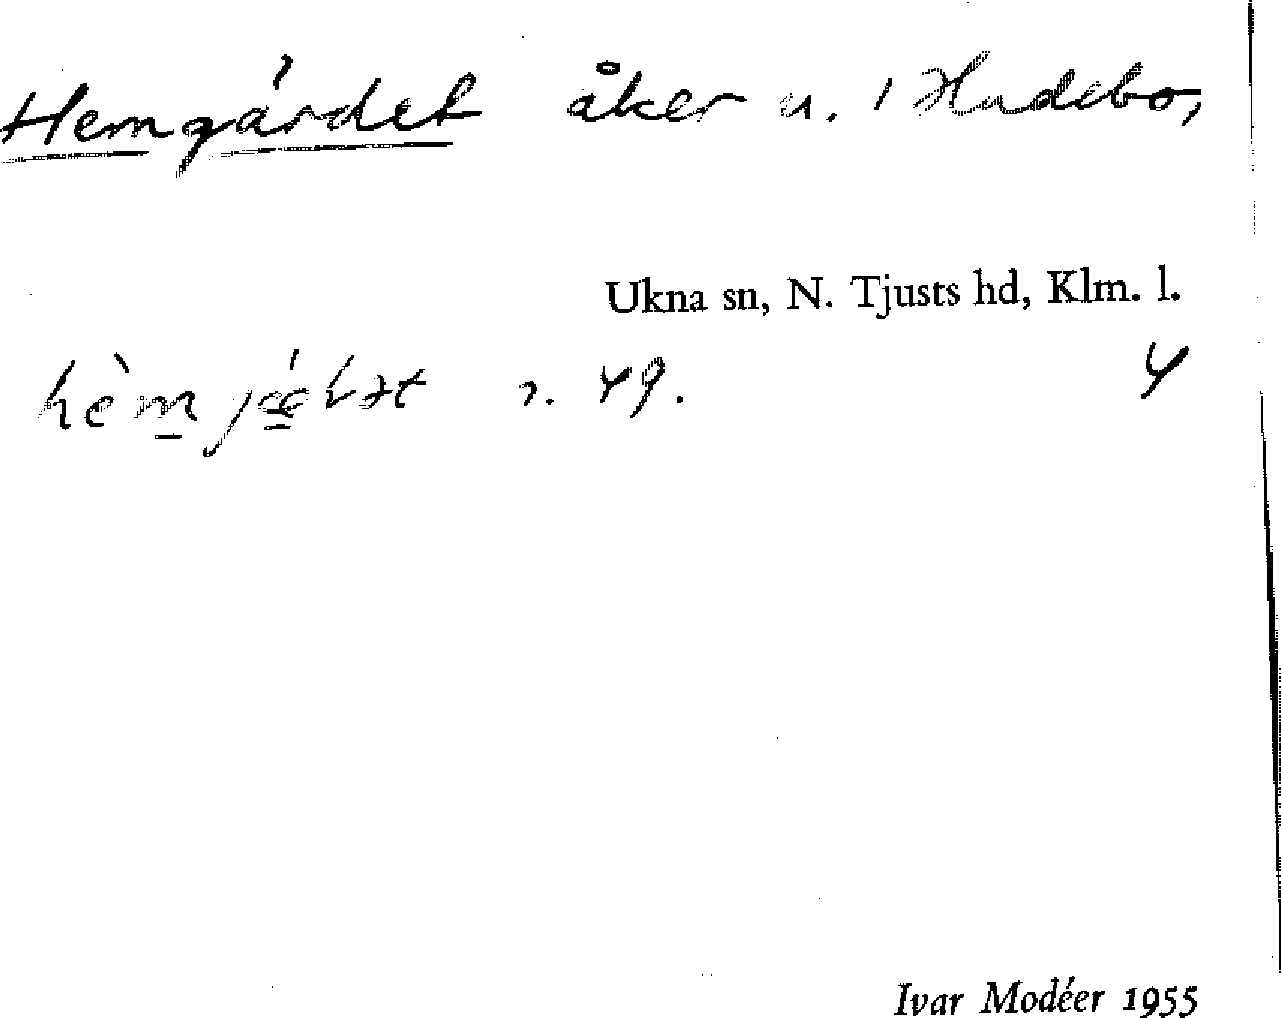 Hemgärdet åker u. 1 Hudebo,
Ukna sn, N. Tjusts hd, Klm. l.
r. 49. 4
Ivar Modéer 1955